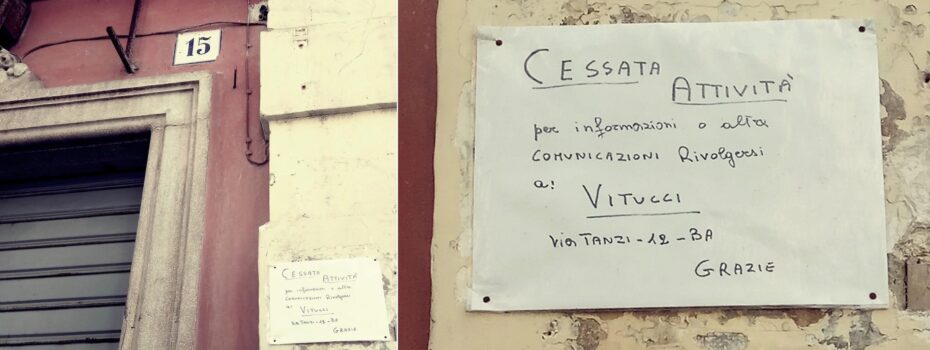 15
CESSATA
ATTIVITÀ
per informazioni o altra
COMUNICAZIONI Rivolgersi
a:
VITUCCI
via TANZI-12-BA
GRAZIE
CESSATA
ATTIVITÀ
per informazioni o altra
COMUNICAZIONI Rivolgersi
a:
VITUCCI
via TANZI-12-BA
GRAZIE